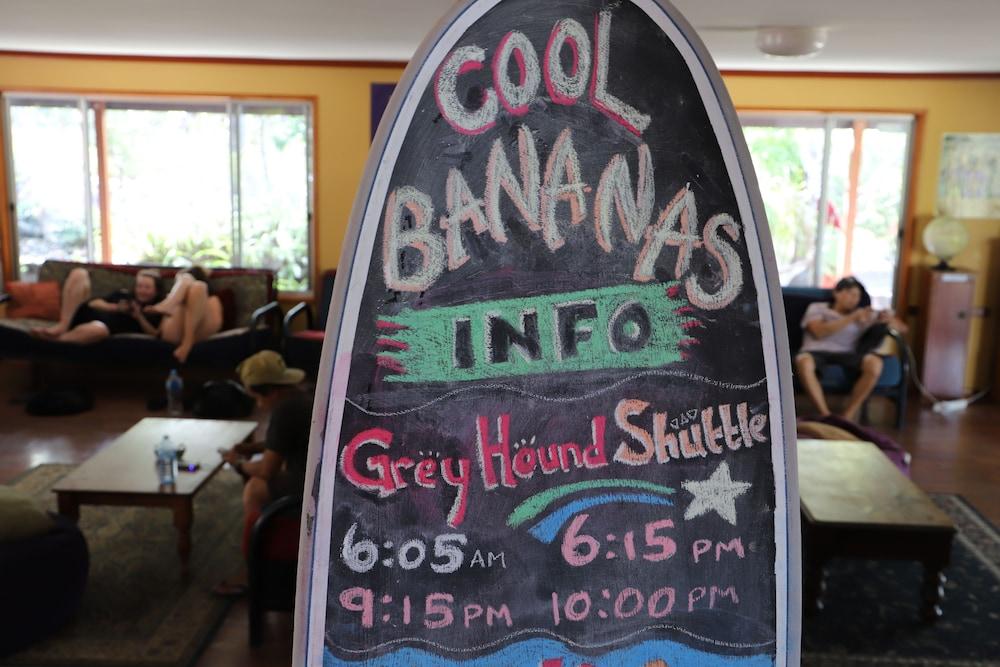 COOL
BANANAS
INFO
Grëy Höund Shuttle
6:05 AM 6:15 PM
9:15 PM 10:00 PM